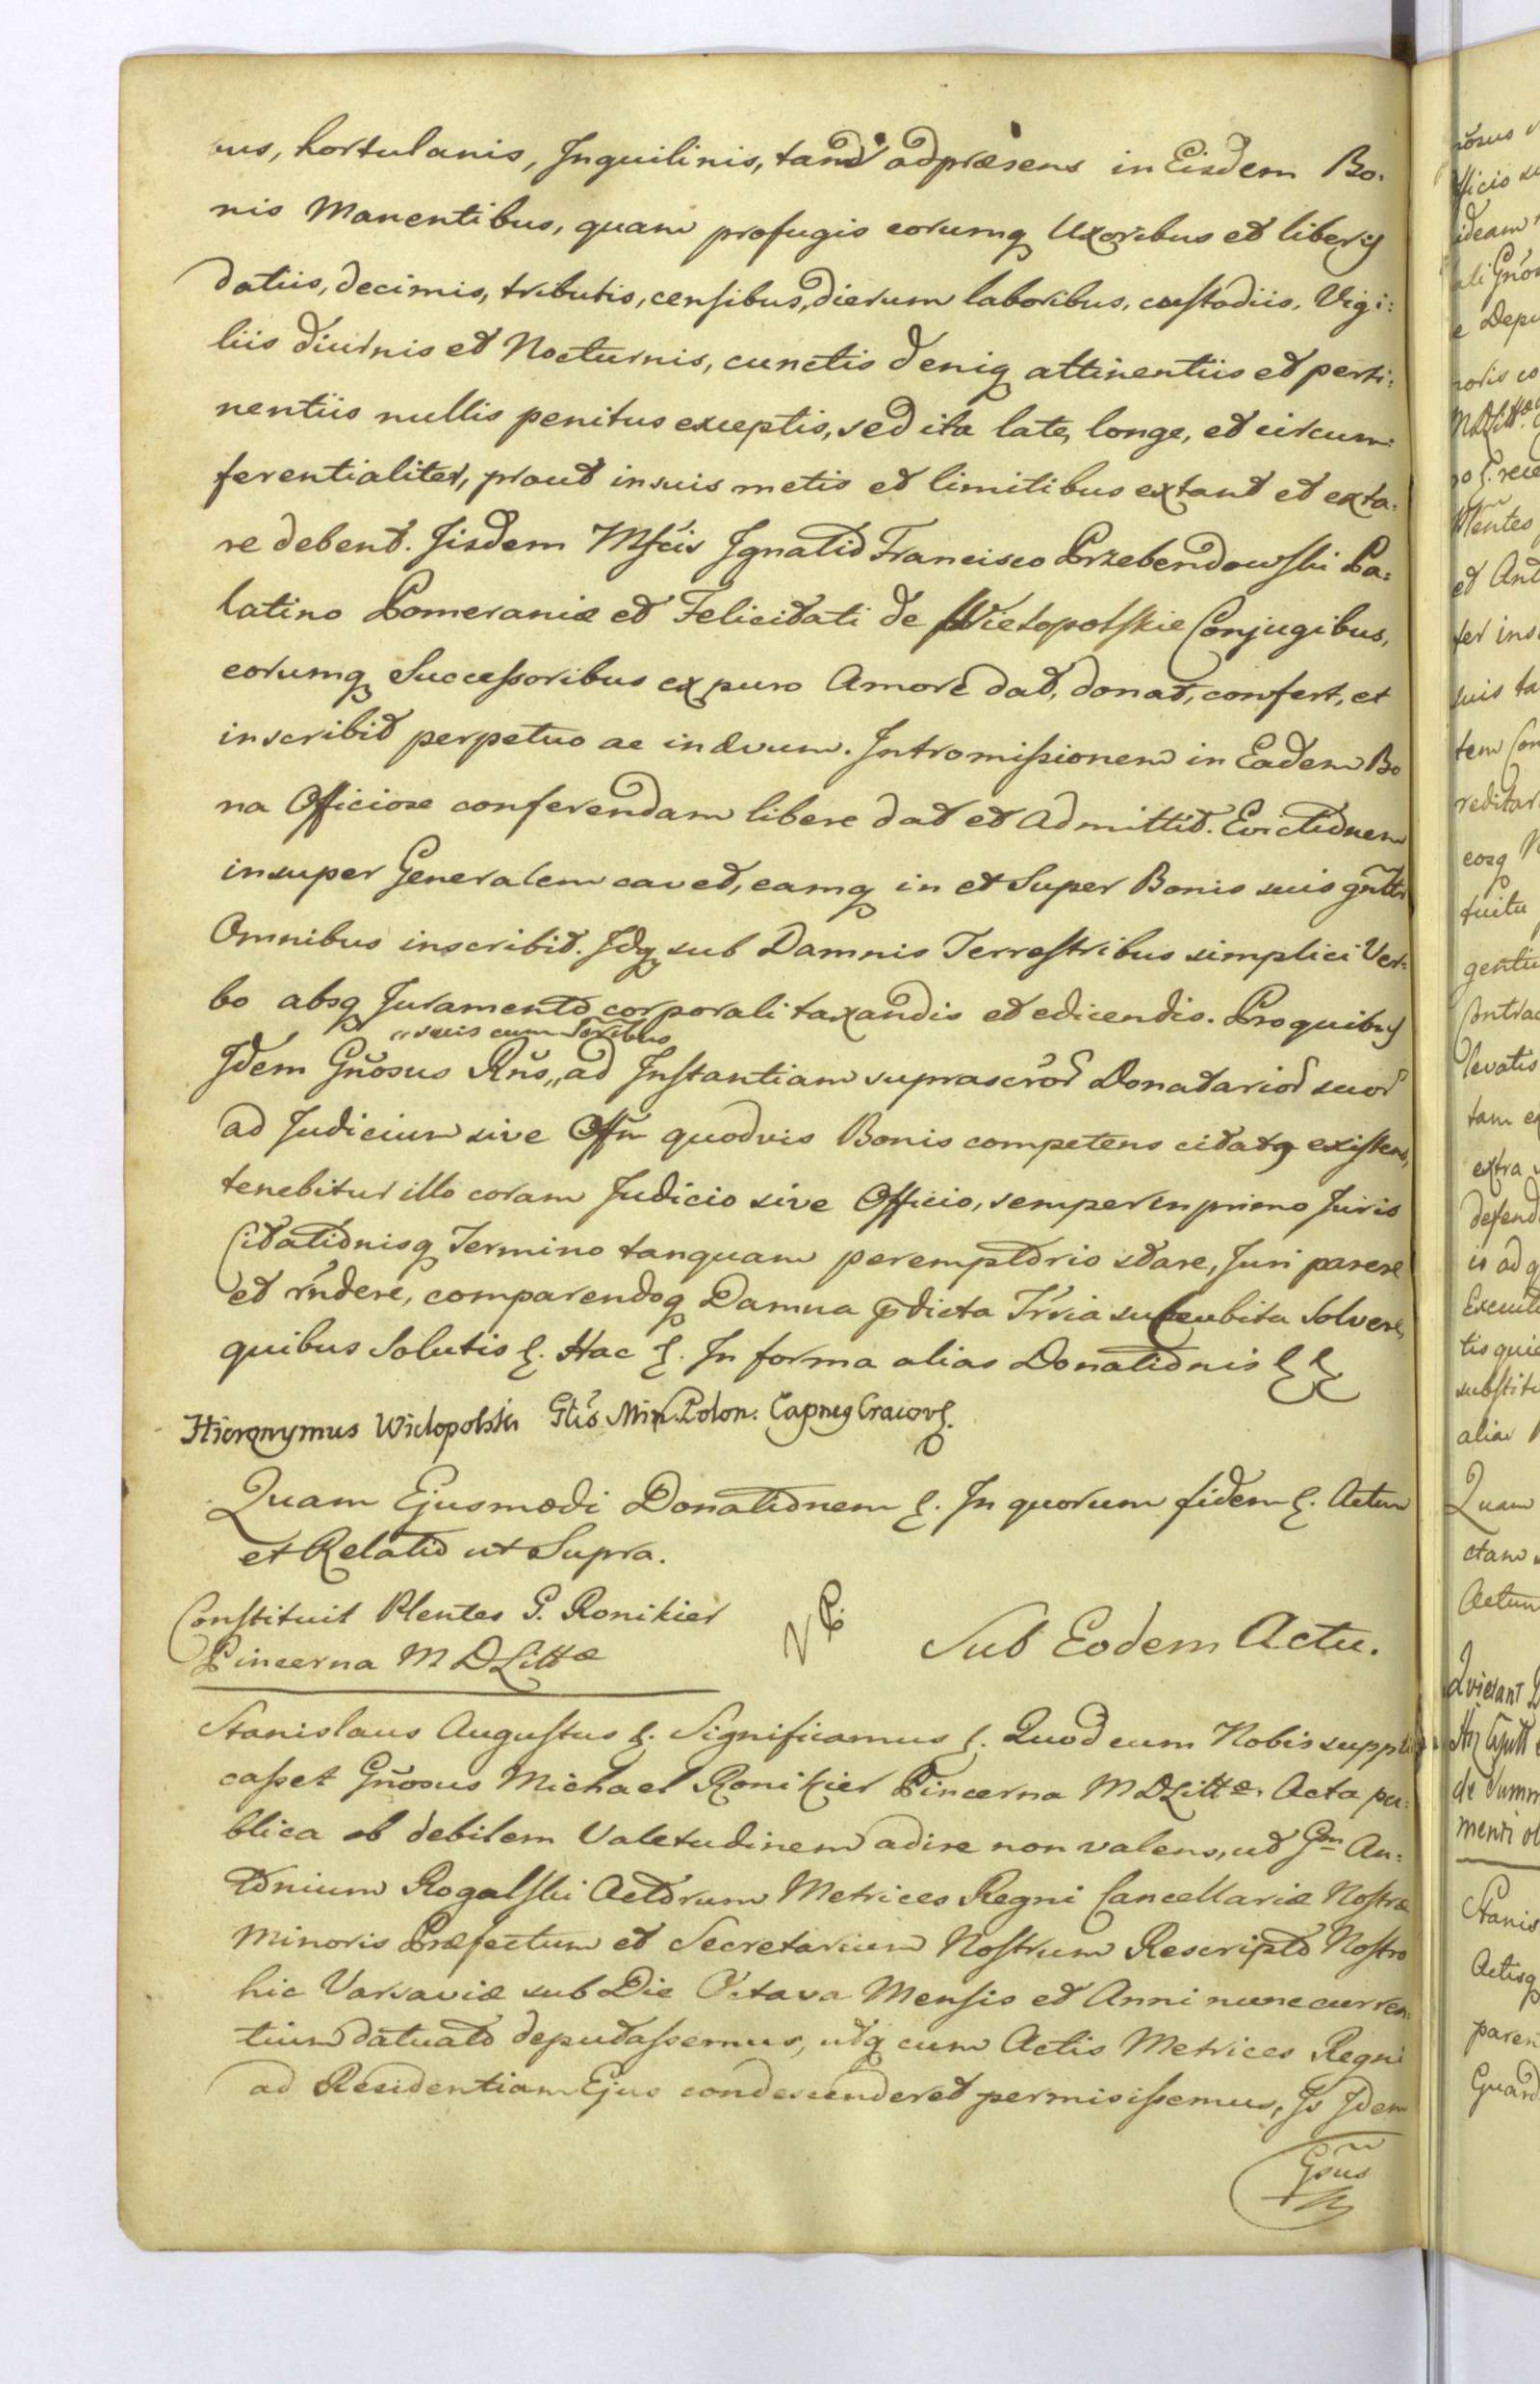 bus, hortulanis, Inquilinis, tam adpræsens in Eisdem Bo.
nis Manentibus, quam profugis eorumq Uxoribus et liberis
datiis, decimis, tributis, censibus, dierum laboribus, custodiis, Vigi:
liis diurnis et Nocturnis, cunctis deniq attinentiis et perti:
nentiis nullis penitus exceptis, sed ita late, longe, et circum:
ferentialiter, prout in suis metis et limitibus extant et exta:
re debent. Iisdem Mfcis Ignatio Francisco Przebendowski Pa:
latino Pomeraniæ et Felicitati de Wielopolskie Conjugibus,
eorumq Successoribus ex puro Amore dat, donat, confert, et
inscribit perpetuo ac in ævum. Intromissionem in Eadem Bo
na Officiose conferendam libere dat et admittit. Evictionem
insuper Generalem cavet, eamq in et Super Bonis suis gnltr
Omnibus inscribit. Idq sub Damnis Terrestribus simplici Ver:
bo absq Juramento corporali taxandis et edicendis. Pro quibus
„suis cum Scribus
Idem Gnosus Rns„ ad Instantiam suprascror Donatarior suor
ad Judicium sive Offm quodvis Bonis competens citatq existens,
tenebitur illo coram Judicio sive Officio, semper in primo Juris
Citationisq Termino tanquam peremptorio stare, Juri parere
et rndere, comparendoq Damna pdicta Trria succubita Solvere,
quibus Solutis &. Hac &. In forma alias Donationis &&
Hieronymus Wielopolski Glis Min. Polon. Capneq Cracov&.
Quam Ejusmodi Donationem &. In quorum fidem &. Actum
et Relatio ut Supra.
Constituit Plentes G. Ronikier
Pincerna M D Littæ
Sub Eodem Actu.
Stanislaus Augustus &. Significamus &. Quod cum Nobis suppli
casset Gnosus Michael Ronikier Pincerna M D Littæ. Acta pu:
blica ob debilem Valetudinem adire non valens, ut Gm An:
tonium Rogalski Actorum Metrices Regni Cancellariæ Nostræ
Minoris Præfectum et Secretarium Nostrum Rescripto Nostro
hic Varsaviæ sub Die Octava Mensis et Anni nunc curren:
tium datuato deputassemus, utq cum Actis Metrices Regni
ad Residentiam Ejus condescenderet permisissemus, Is Idem
Gsus